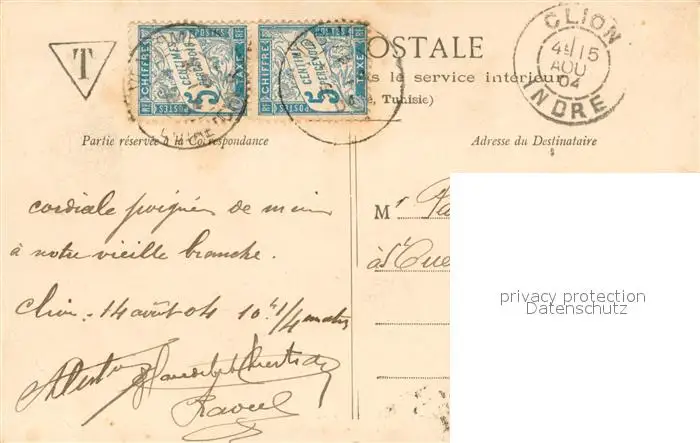 T
CHIFFRES TAXE
5 CENTIMES À PERCEVOIR
POSTES
CHIFFRES TAXE
5 CENTIMES À PERCEVOIR
POSTES
OSTALE
le service intérieur
Tunisie)
CLION
15
AOU
04
INDRE
Partie réservée à la Correspondance
Adresse du Destinataire
cordiale poignée de main
à notre vieille branche.
Clion. 14 août 04 10h 1/4 matin
Mr
à St
privacy protection
Datenschutz